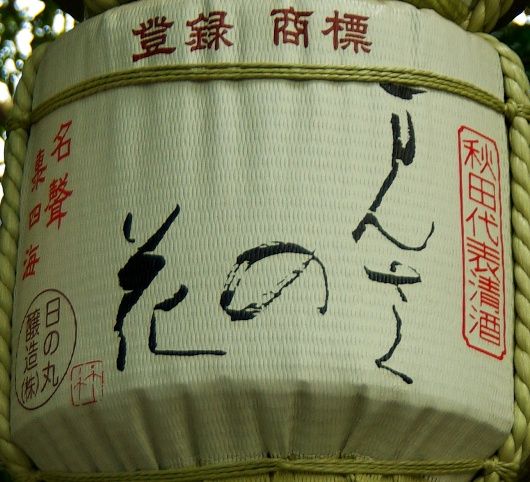 登録 商標
秋田代表清酒
まんさく
の
花
名聲
四海
日の丸
醸造(株)